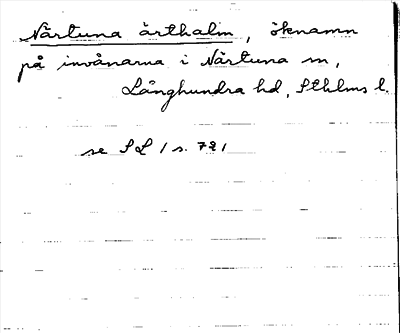 Närtuna ärthalm, öknamn
på invånarna i Närtuna sn,
Långhundra hd, Sthlms l.
se SL 1 s. 721